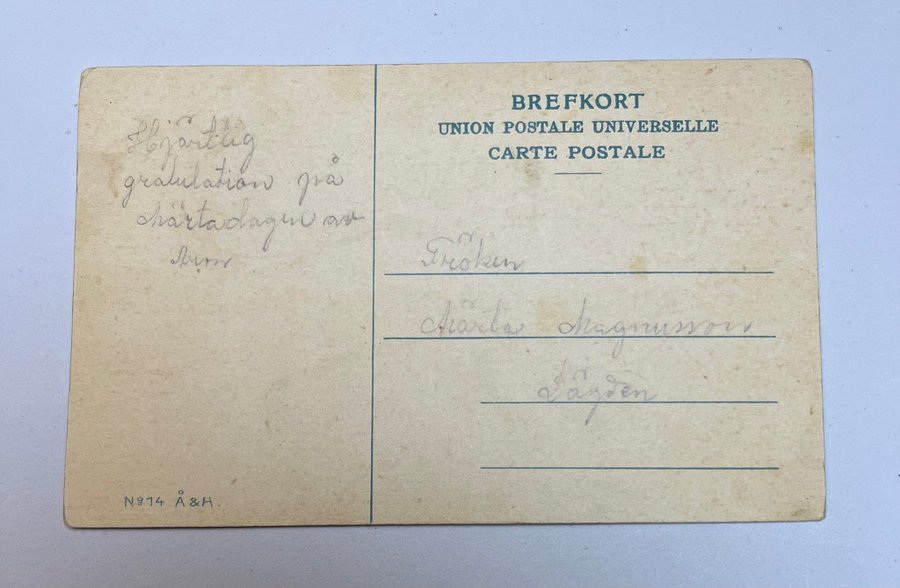 Hjärtlig
gratulation på
Märtadagen av
BREFKORT
UNION POSTALE UNIVERSELLE
CARTE POSTALE
Fröken
Märta Magnusson
Nº14 Å&H.